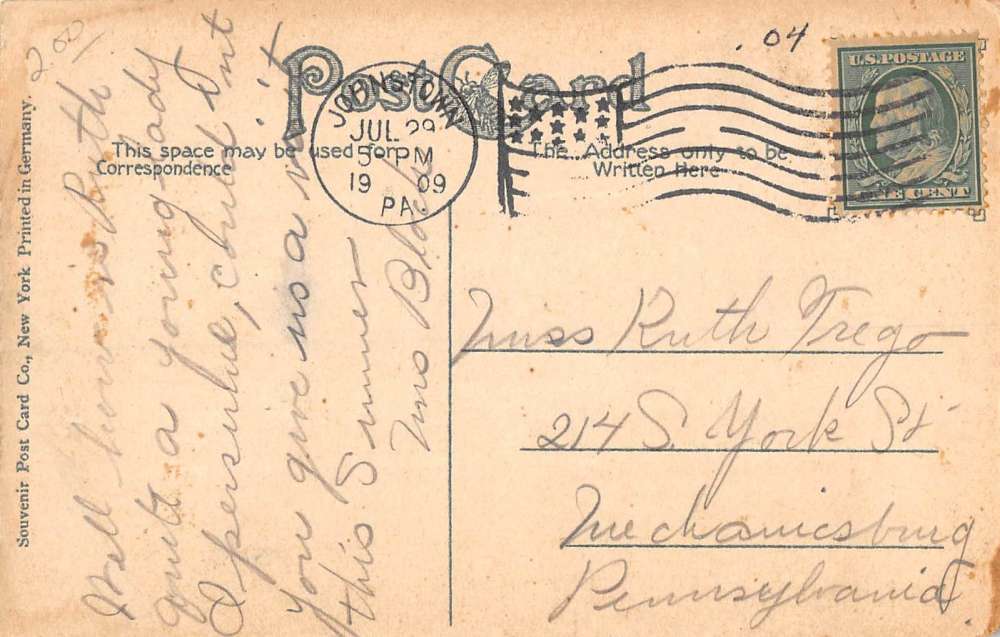 2.00
.04
Post Card
This space may be used for
Correspondence
The Address only to be
Written Here
JOHNSTOWN
JUL 29
5 PM
19 09
PA.
U.S. POSTAGE
ONE CENT
Souvenir Post Card Co., New York Printed in Germany.
Well how is Ruth
quite a young lady
I persuhue, could't
you give us a visit
this Summer
Mrs
Miss Ruth Trego
214 S. York St
Mechanicsburg
Pennsylvania